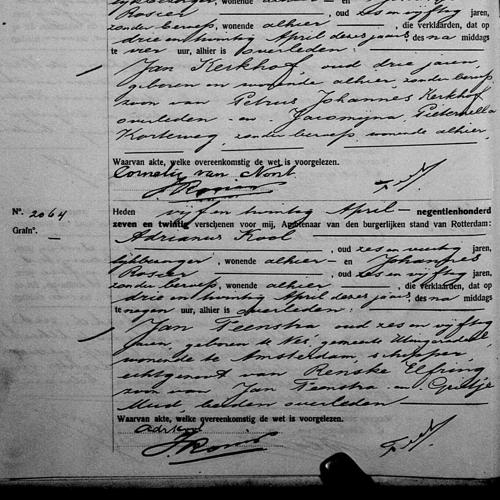 lijkbezorger, wonende alhier — en Johannes
Rosier, oud zes en vijftig jaren,
zonder beroep, wonende alhier, die verklaarden, dat op
drie en twintig April dezes jaars, des na middags
te vier uur, alhier is overleden:
Jan Kerkhof, oud drie jaren,
geboren en wonende alhier, zonder beroep,
zoon van Petrus Johannes Kerkhof
overleden - en - Jacomijna Pieternella
Korteweg, zonder beroep, wonende alhier.
Waarvan akte, welke overeenkomstig de wet is voorgelezen.
Cornelis van Nont
JRosier
N°. 2064
Heden vijf en twintig April — negentienhonderd
Grafn°. —
zeven en twintig verschenen voor mij, Ambtenaar van den burgerlijken stand van Rotterdam:
Adrianus Kool
, oud zes en veertig jaren,
lijkbezorger, wonende alhier — en Johannes
Rosier, oud zes en vijftig jaren,
zonder beroep, wonende alhier, die verklaarden, dat op
drie en twintig April dezes jaars, des na middags
te negen uur, alhier is overleden:
Jan Teenstra oud zes en vijftig
jaren, geboren te Nes, gemeente
wonende te Amsterdam, schipper,
echtgenoot van Renske Elfring
zoon van Jan Teenstra - en - Geertje
Must, beiden overleden
Waarvan akte, welke overeenkomstig de wet is voorgelezen.
AdrKool
JRosier